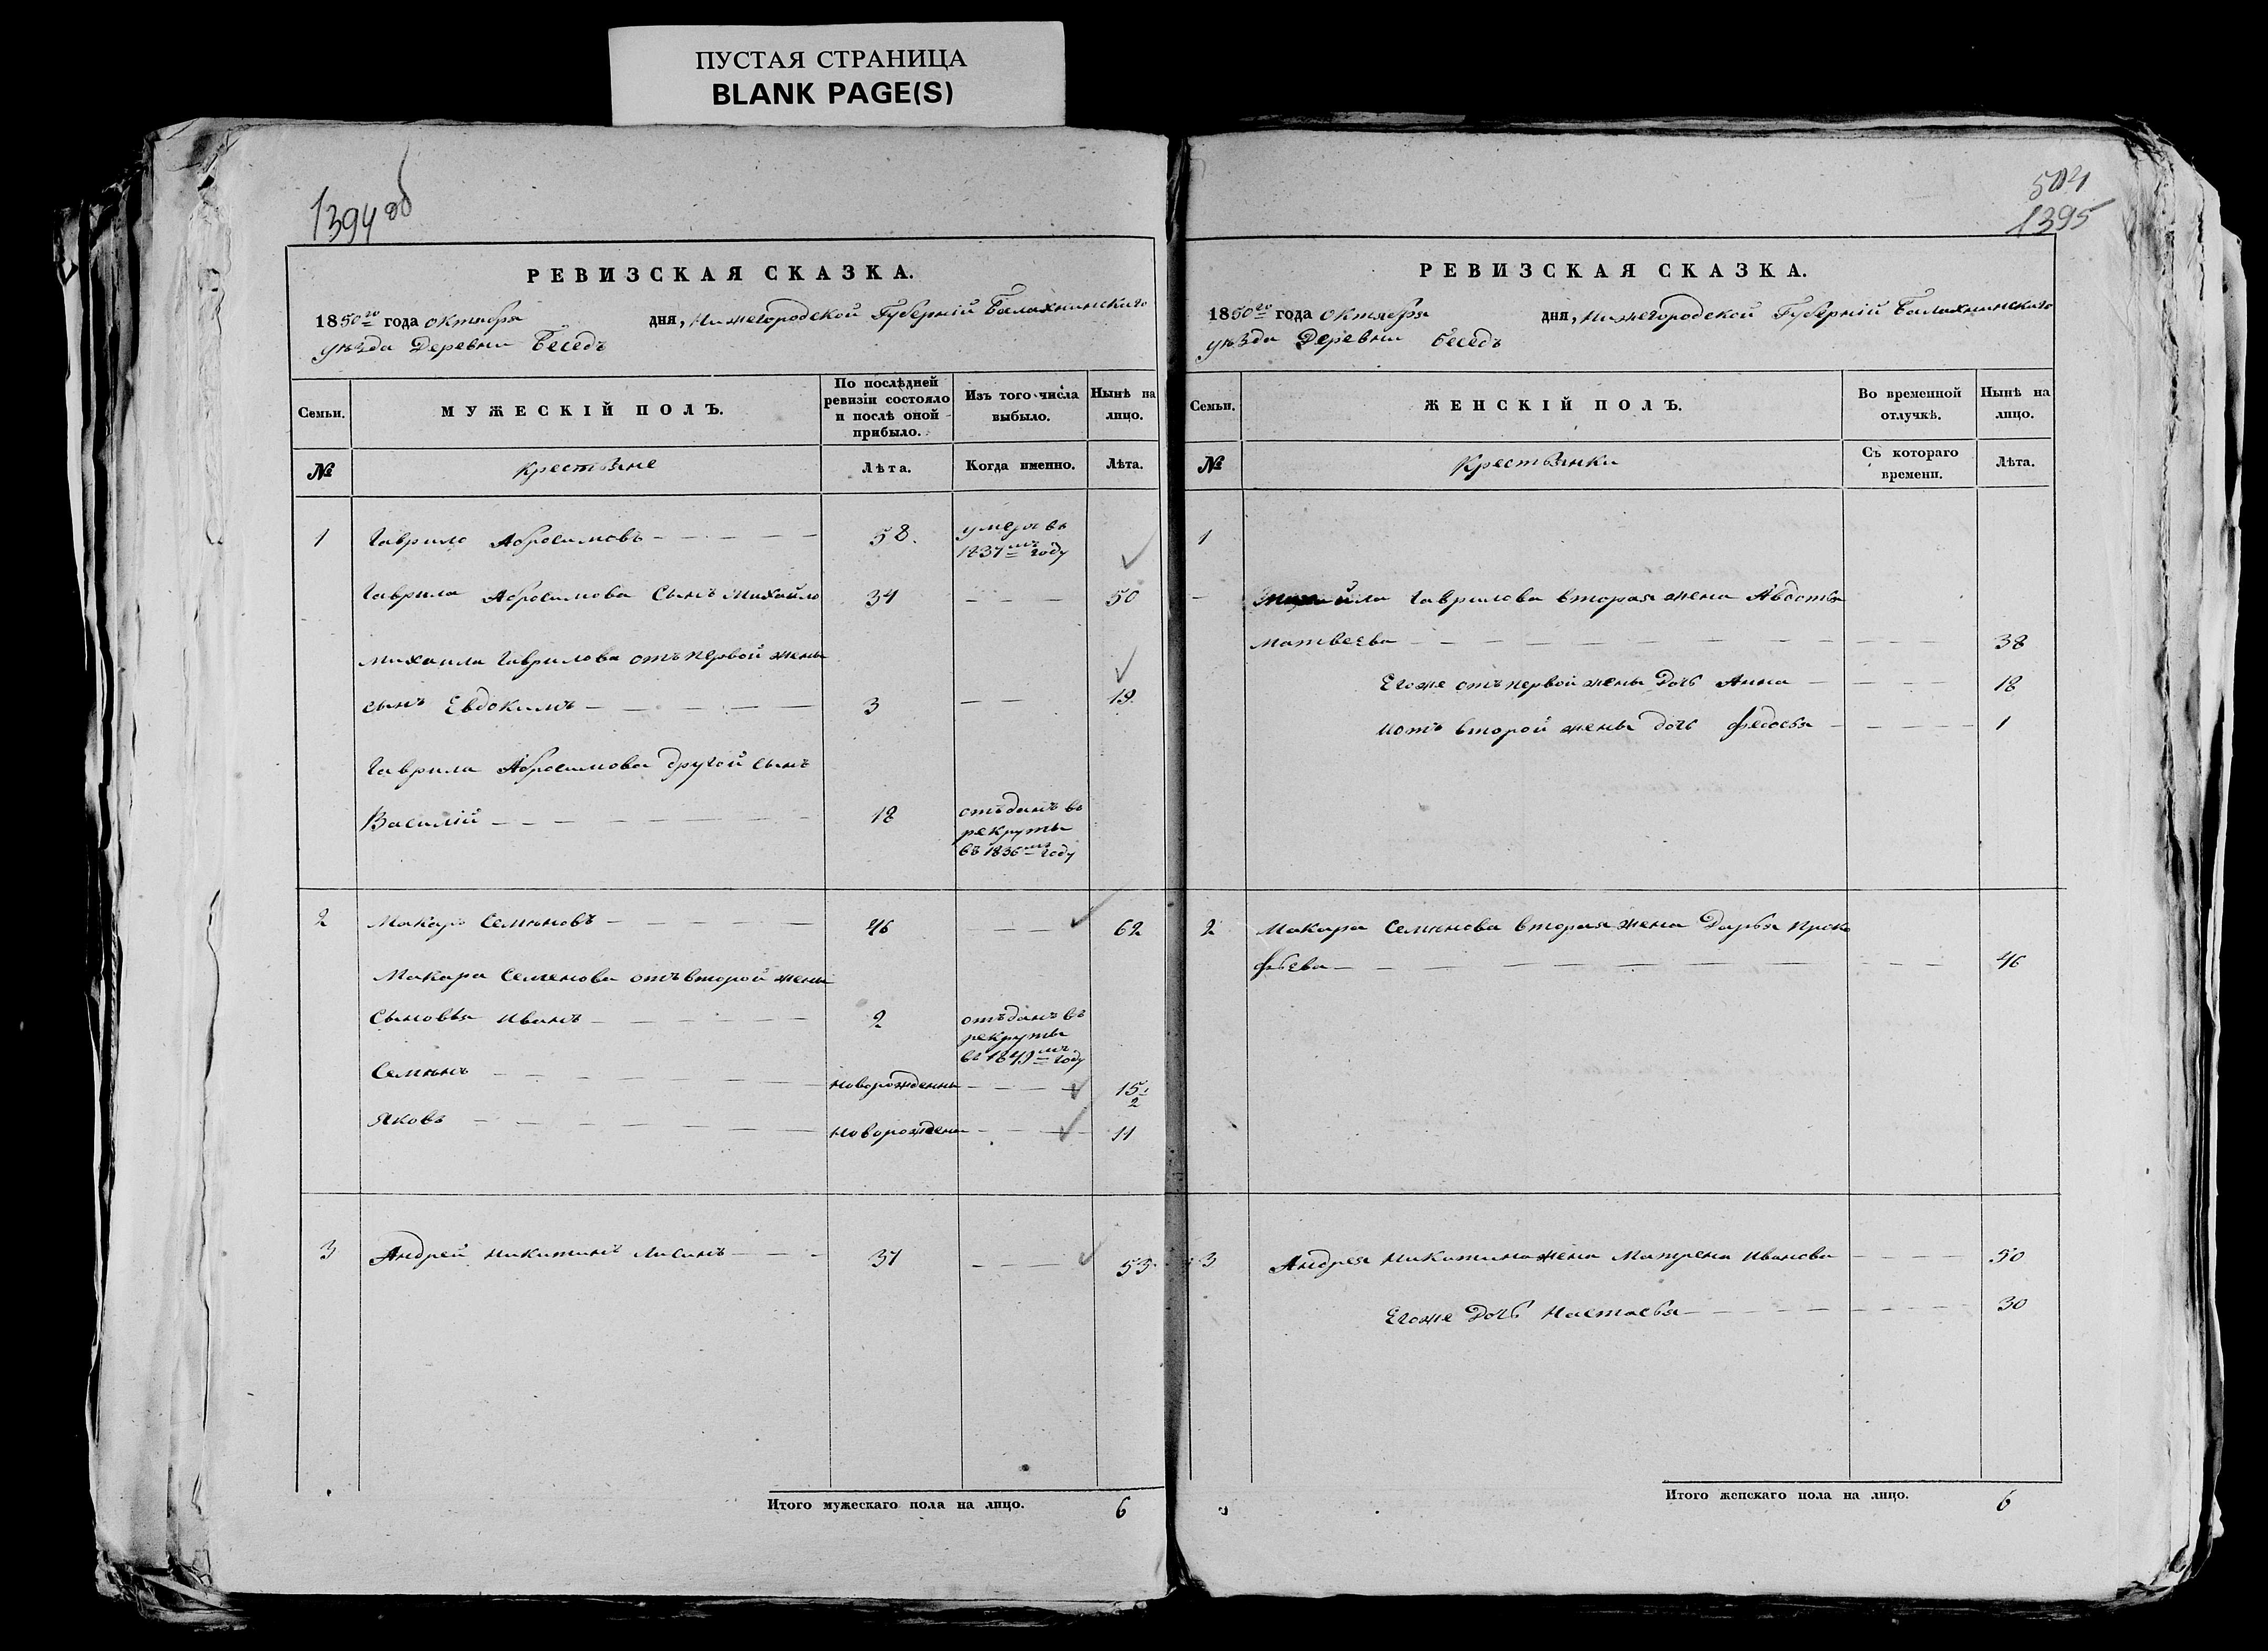 ПУСТАЯ СТРАНИЦА
BLANK PAGE(S)
1394 об
РЕВИЗСКАЯ СКАЗКА.
1850го года октября дня, Нижегородской Губерніи Балахнинскаго
уѣзда Деревни Беседъ
Семьи. МУЖЕСКІЙ ПОЛЪ. По послѣдней ревизіи состояло и послѣ оной прибыло. Изъ того числа выбыло. Нынѣ на лицо.
№ Крестьяне Лѣта. Когда именно. Лѣта.
1 Гаврило Абросимовъ 58. умеръ въ
1837мъ году
Гаврила Абросимова Сынъ Михайло 34 50
Михаила Гаврилова отъ первой жены
сынъ Евдокимъ 3 19.
Гаврила Абросимова другой сынъ
Василій 18 отъданъ въ
рекруты
въ 1836мъ году
2 Макаръ Семеновъ 46 62
Макара Семенова отъ второй жены
Сыновья Иванъ 2 отъданъ въ
рекруты
въ 1849мъ году
Семенъ новорожденны 15 1/2
Яковъ новорожден 11
3 Андрей Никитинъ Лисинъ 37 53
Итого мужескаго пола на лицо. 6
504
1395
РЕВИЗСКАЯ СКАЗКА.
1850го года Октября дня, Нижегородской Губерніи Балахнинскаго
уѣзда Деревни Беседъ
Семьи. ЖЕНСКІЙ ПОЛЪ. Во временной отлучкѣ. Нынѣ на лицо.
№ Крестьянки Съ котораго времени. Лѣта.
1
Михайла Гаврилова вторая жена Авдотья
Матвеева 38
Егоже отъ первой жены Дочь Анна 18
иотъ второй жены дочь Федосья 1
2 Макара Семенова вторая жена Дарья Проко
фьева 46
3 Андрея Никитина жена Матрена Иванова 50
Егоже Дочь Настасья 30
Итого женскаго пола на лицо. 6